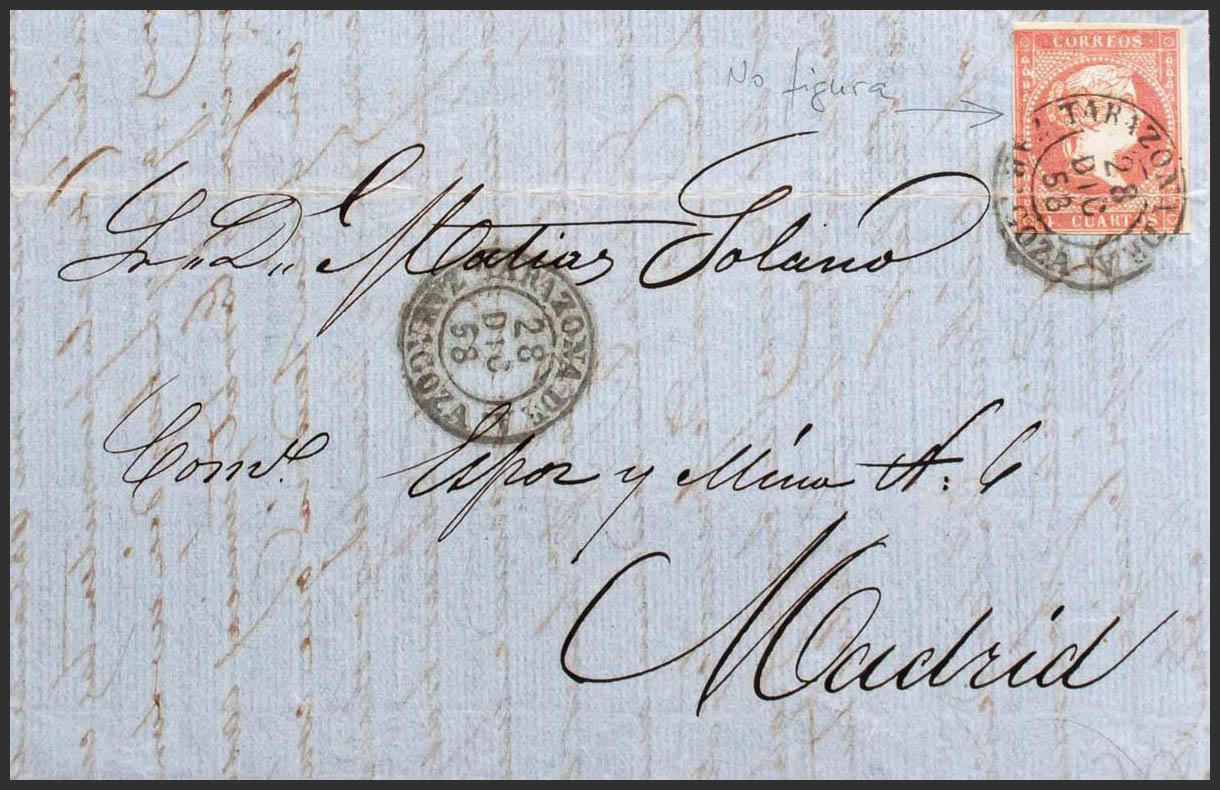 No figura
CORREOS
CUARTOS
TARAZONA
28
DIC
58
Sr. D. Matias Solano
TARAZONA DE
28
DIC
58
Com.º Espoz y Mina N. 6
Madrid